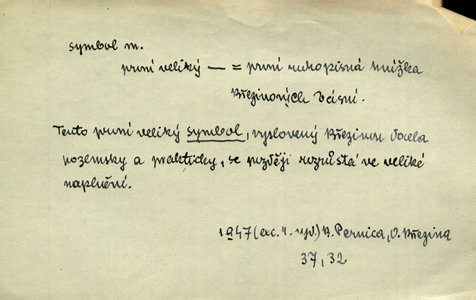 symbol m.
první veliký — = první rukopisná knížka
Březinových básní.
Tento první veliký symbol, vyslovený Březinou docela
pozemsky a prakticky, se později rozrůstá ve veliké
naplnění.
1947 (exc. 1. vyd.) B. Pernica, O. Březina
37, 32